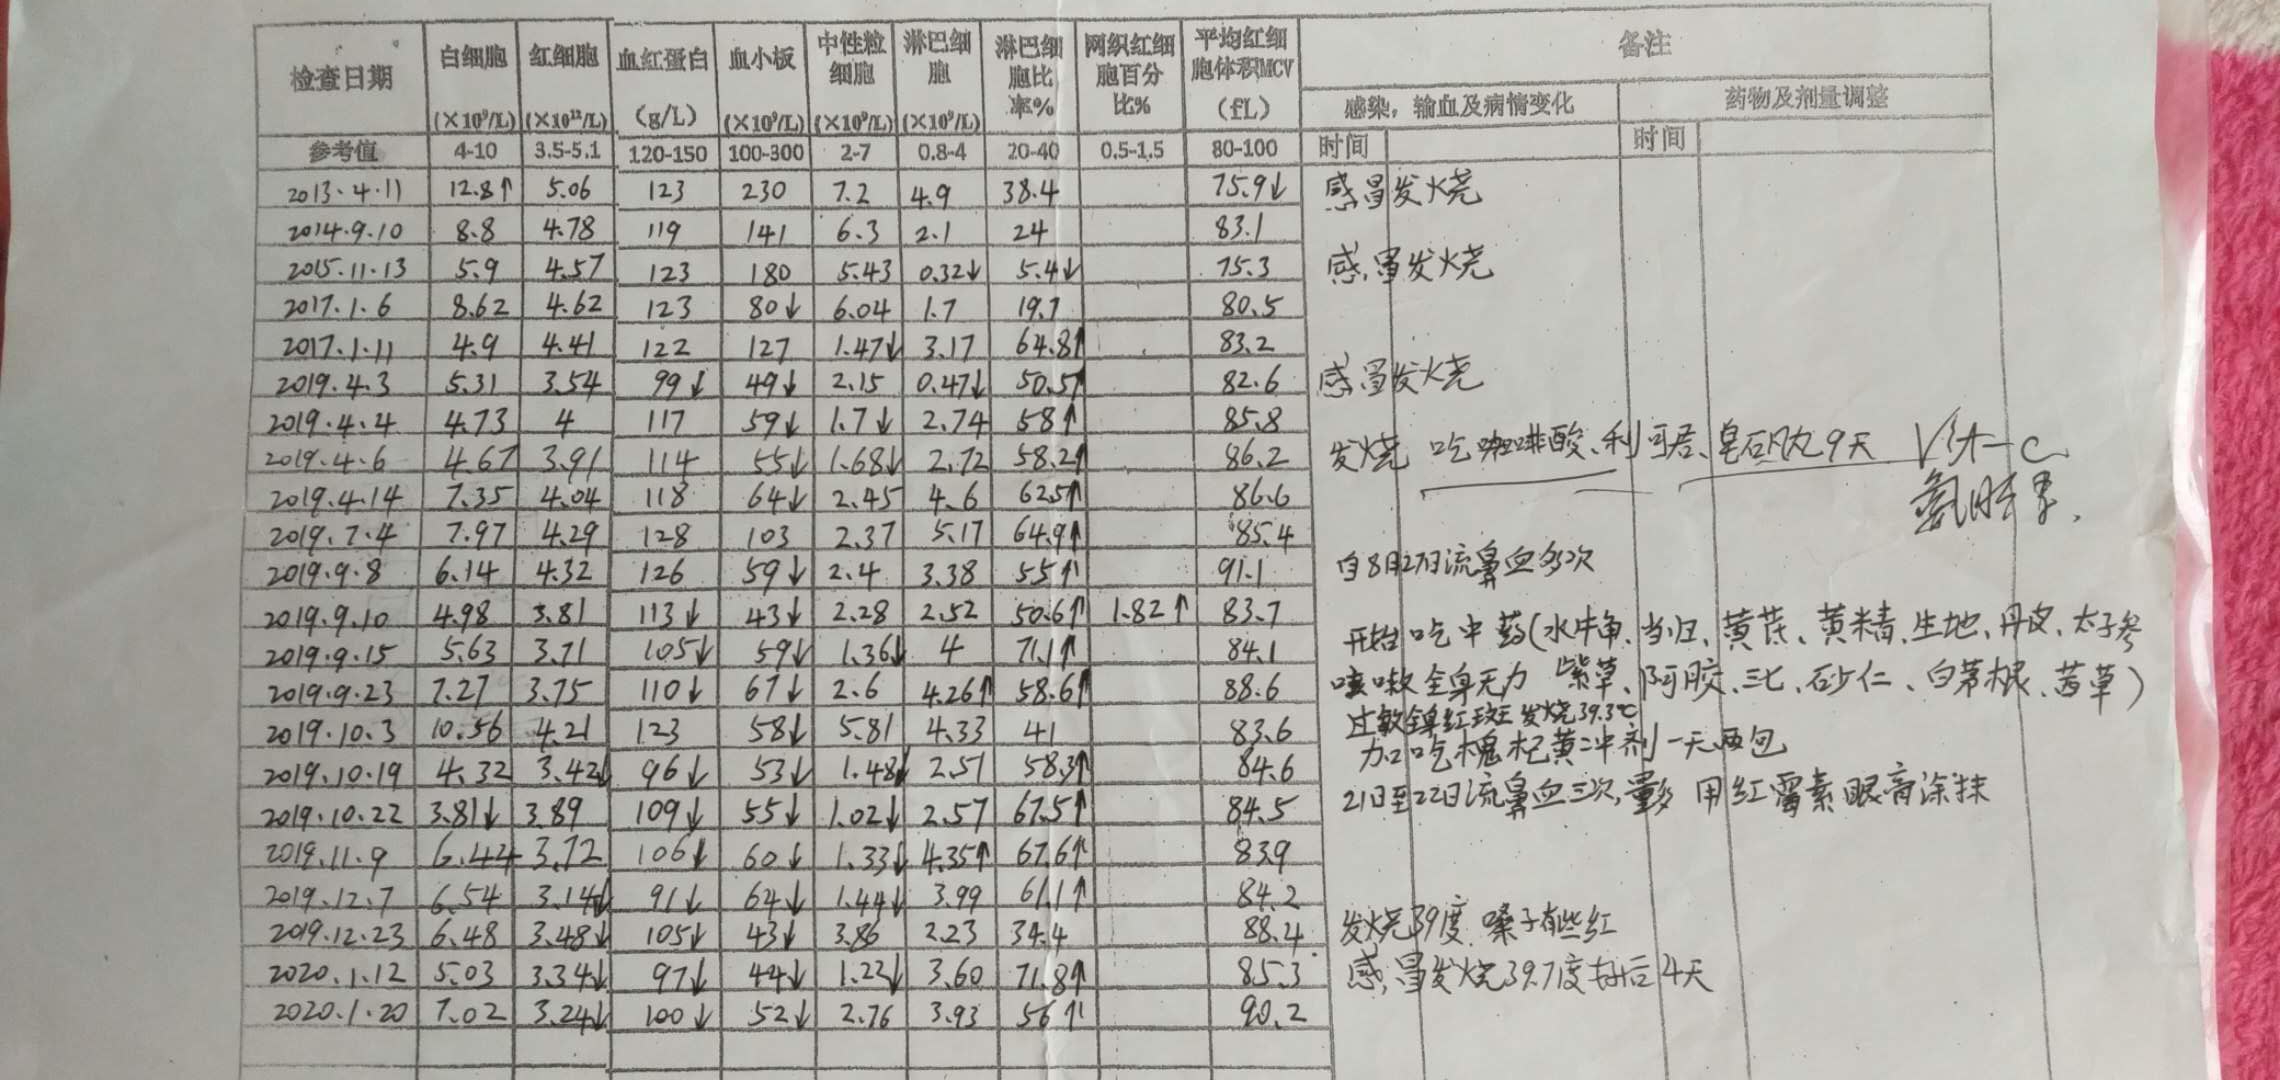 检查日期 白细胞 (×10⁹/L) 红细胞 (×10¹²/L) 血红蛋白 (g/L) 血小板 (×10⁹/L) 中性粒细胞 (×10⁹/L) 淋巴细胞 (×10⁹/L) 淋巴细胞比率% 网织红细胞百分比% 平均红细胞体积MCV (fL) 备注
感染，输血及病情变化 药物及剂量调整
参考值 4-10 3.5-5.1 120-150 100-300 2-7 0.8-4 20-40 0.5-1.5 80-100 时间 时间
2013.4.11 12.8↑ 5.06 123 230 7.2 4.9 38.4 75.9↓ 感冒发烧
2014.9.10 8.8 4.78 119 141 6.3 2.1 24 83.1
2015.11.13 5.9 4.57 123 180 5.43 0.32↓ 5.4↓ 75.3 感冒发烧
2017.1.6 8.62 4.62 123 80↓ 6.04 1.7 19.7 80.5
2017.1.11 4.9 4.41 122 127 1.47↓ 3.17 64.8↑ 83.2
2019.4.3 5.31 3.54 99↓ 49↓ 2.15 0.47↓ 50.5↑ 82.6 感冒发烧
2019.4.4 4.73 4 117 59↓ 1.7↓ 2.74 58↑ 85.8
2019.4.6 4.67 3.91 114 55↓ 1.68↓ 2.72 58.2↑ 86.2 发烧 吃咖啡酸、利可君、皂矾丸9天
2019.4.14 7.35 4.04 118 64↓ 2.45 4.6 62.5↑ 86.6
2019.7.4 7.97 4.29 128 103 2.37 5.17 64.9↑ 85.4
2019.9.8 6.14 4.32 126 59↓ 2.4 3.38 55↑ 91.1 自8月27日流鼻血多次
2019.9.10 4.98 3.81 113↓ 43↓ 2.28 2.52 50.6↑ 1.82↑ 83.7 开始吃中药(水牛角、当归、黄芪、黄精、生地、丹皮、太子参
2019.9.15 5.63 3.71 105↓ 59↓ 1.36↓ 4 71.1↑ 84.1
2019.9.23 7.27 3.75 110↓ 67↓ 2.6 4.26↑ 58.6↑ 88.6 咳嗽全身无力 紫草、阿胶、三七、砂仁、白茅根、茜草)
2019.10.3 10.56 4.21 123 58↓ 5.81 4.33 41 83.6 过敏全身红斑 发烧39.3℃
2019.10.19 4.32 3.42↓ 96↓ 53↓ 1.48↓ 2.51 58.3↑ 84.6 加吃槐杞黄冲剂一天两包
2019.10.22 3.81↓ 3.89 109↓ 55↓ 1.02↓ 2.57 67.5↑ 84.5 21日至22日流鼻血三次,量多 用红霉素眼膏涂抹
2019.11.9 6.44 3.72 106↓ 60↓ 1.33↓ 4.35↑ 67.6↑ 83.9
2019.12.7 6.54 3.14↓ 91↓ 64↓ 1.44↓ 3.99 61.1↑ 84.2
2019.12.23 6.48 3.48↓ 105↓ 43↓ 3.86 2.23 34.4 88.4 发烧39度 嗓子有些红
2020.1.12 5.03 3.34↓ 97↓ 44↓ 1.22↓ 3.60 71.8↑ 85.3 感冒发烧39.7度 后4天
2020.1.20 7.02 3.24↓ 100↓ 52↓ 2.76 3.93 56↑ 90.2